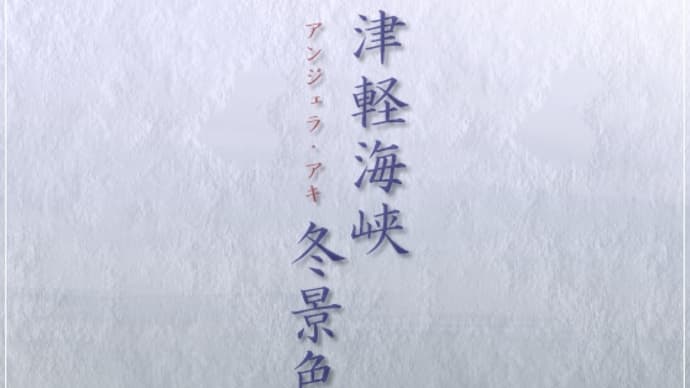 津軽海峡
アンジェラ・アキ
冬景色